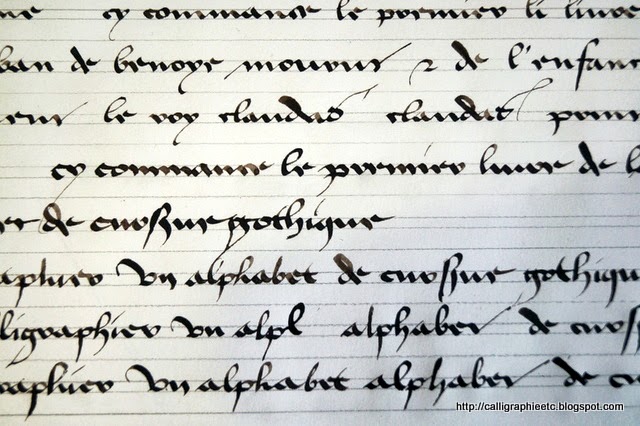 cy commance le premier li livre
ban de benoye mourut & de l'enfanc
le roy claudas claudas pour
cy commance le premier livre de l
er de cursive gothique
un alphabet de cursive gothiqu
lligraphier un alpl alphabet de curs
un alphabet alphabet de cu
http://calligraphieetc.blogspot.com